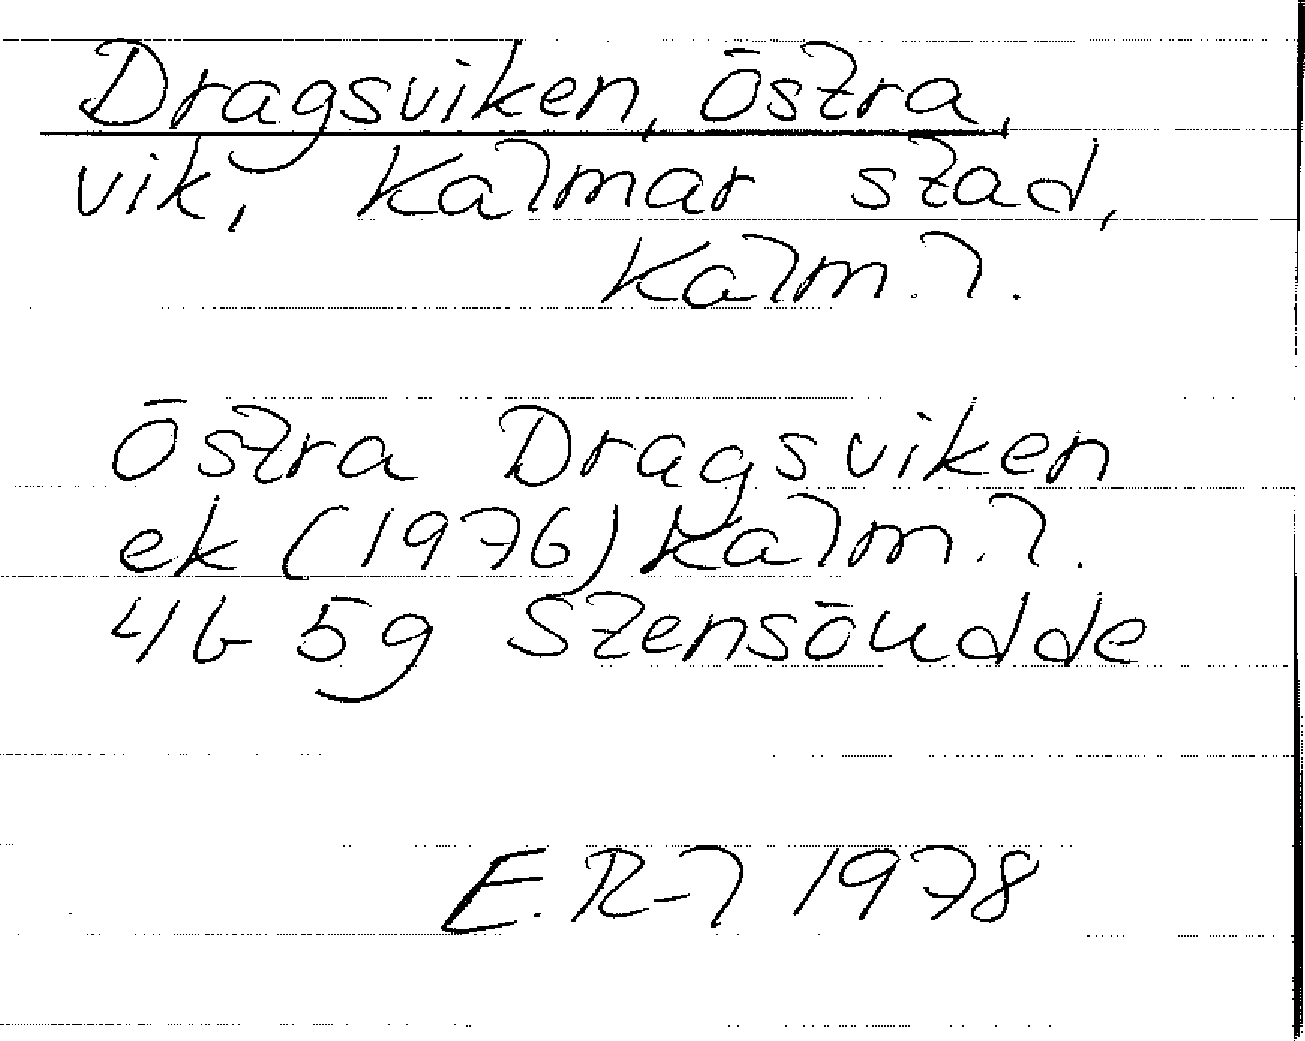 Dragsviken, Östra,
vik, Kalmar stad,
Kalm. l.
Östra Dragsviken
ek (1976) Kalm. l.
4G 5g Stensöudde
E. R-l 1978